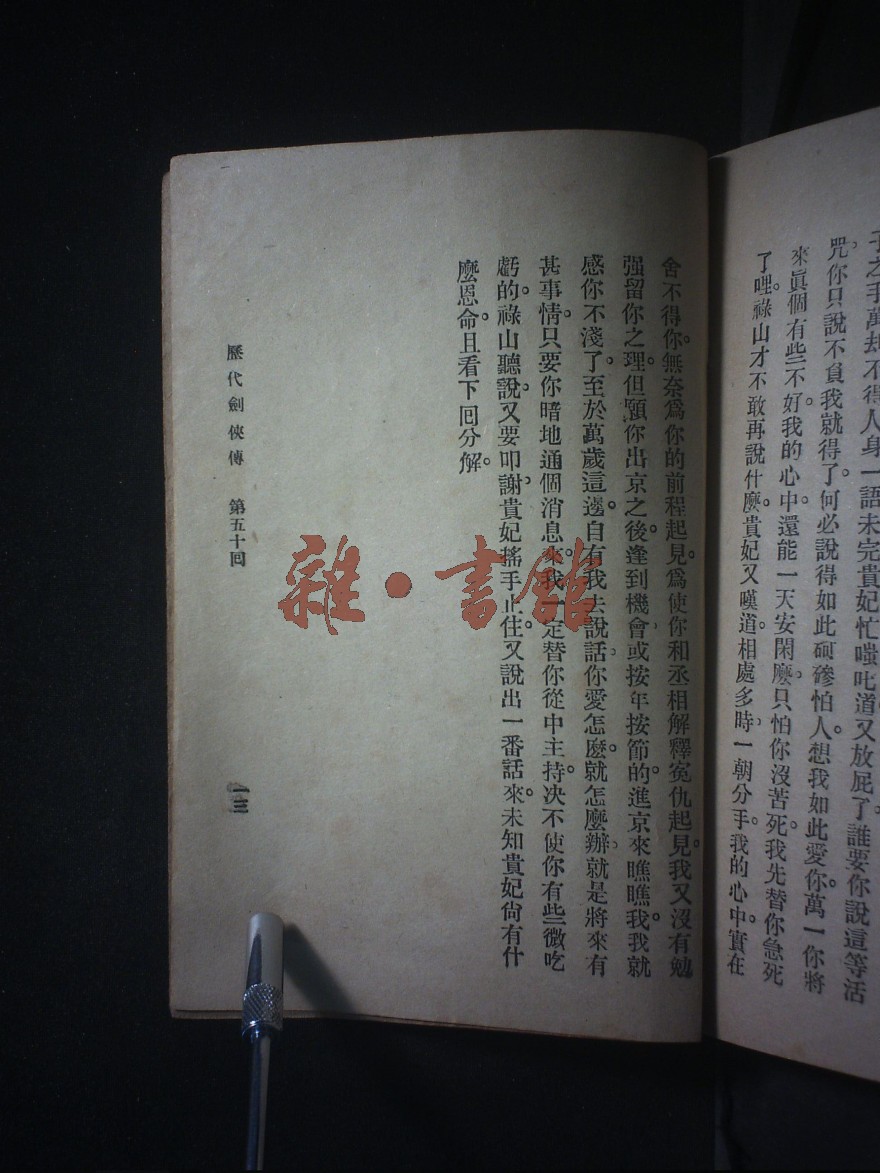 子之手萬刦不得人身一語未完貴妃忙嗤叱道又放屁了。誰要你說這等活
咒你只說不負我就得了。何必說得如此磣怕人。想我如此愛你。萬一你將
來眞個有些不好。我的心中。還能一天安閑麽。只怕你沒苦死。我先替你急死
了哩。祿山才不敢再說什麽。貴妃又嘆道。相處多時。一朝分手。我的心中。實在
舍不得你。無奈爲你的前程起見。爲使你和丞相解釋冤仇起見。我又沒有勉
强留你之理。但願你出京之後。逢到機會。或按年按節的。進京來瞧瞧我。我就
感你不淺了。至於萬歲這邊。自有我去說話。你愛怎麽。就怎麽辦。就是將來有
甚事情。只要你暗地通個消息來。我一定替你從中主持。决不使你有些微吃
虧的。祿山聽說。又要叩謝。貴妃搖手止住。又說出一番話來。未知貴妃尙有什
麽恩命。且看下回分解。
歷代劍俠傳　第五十回
一三
雜·書館